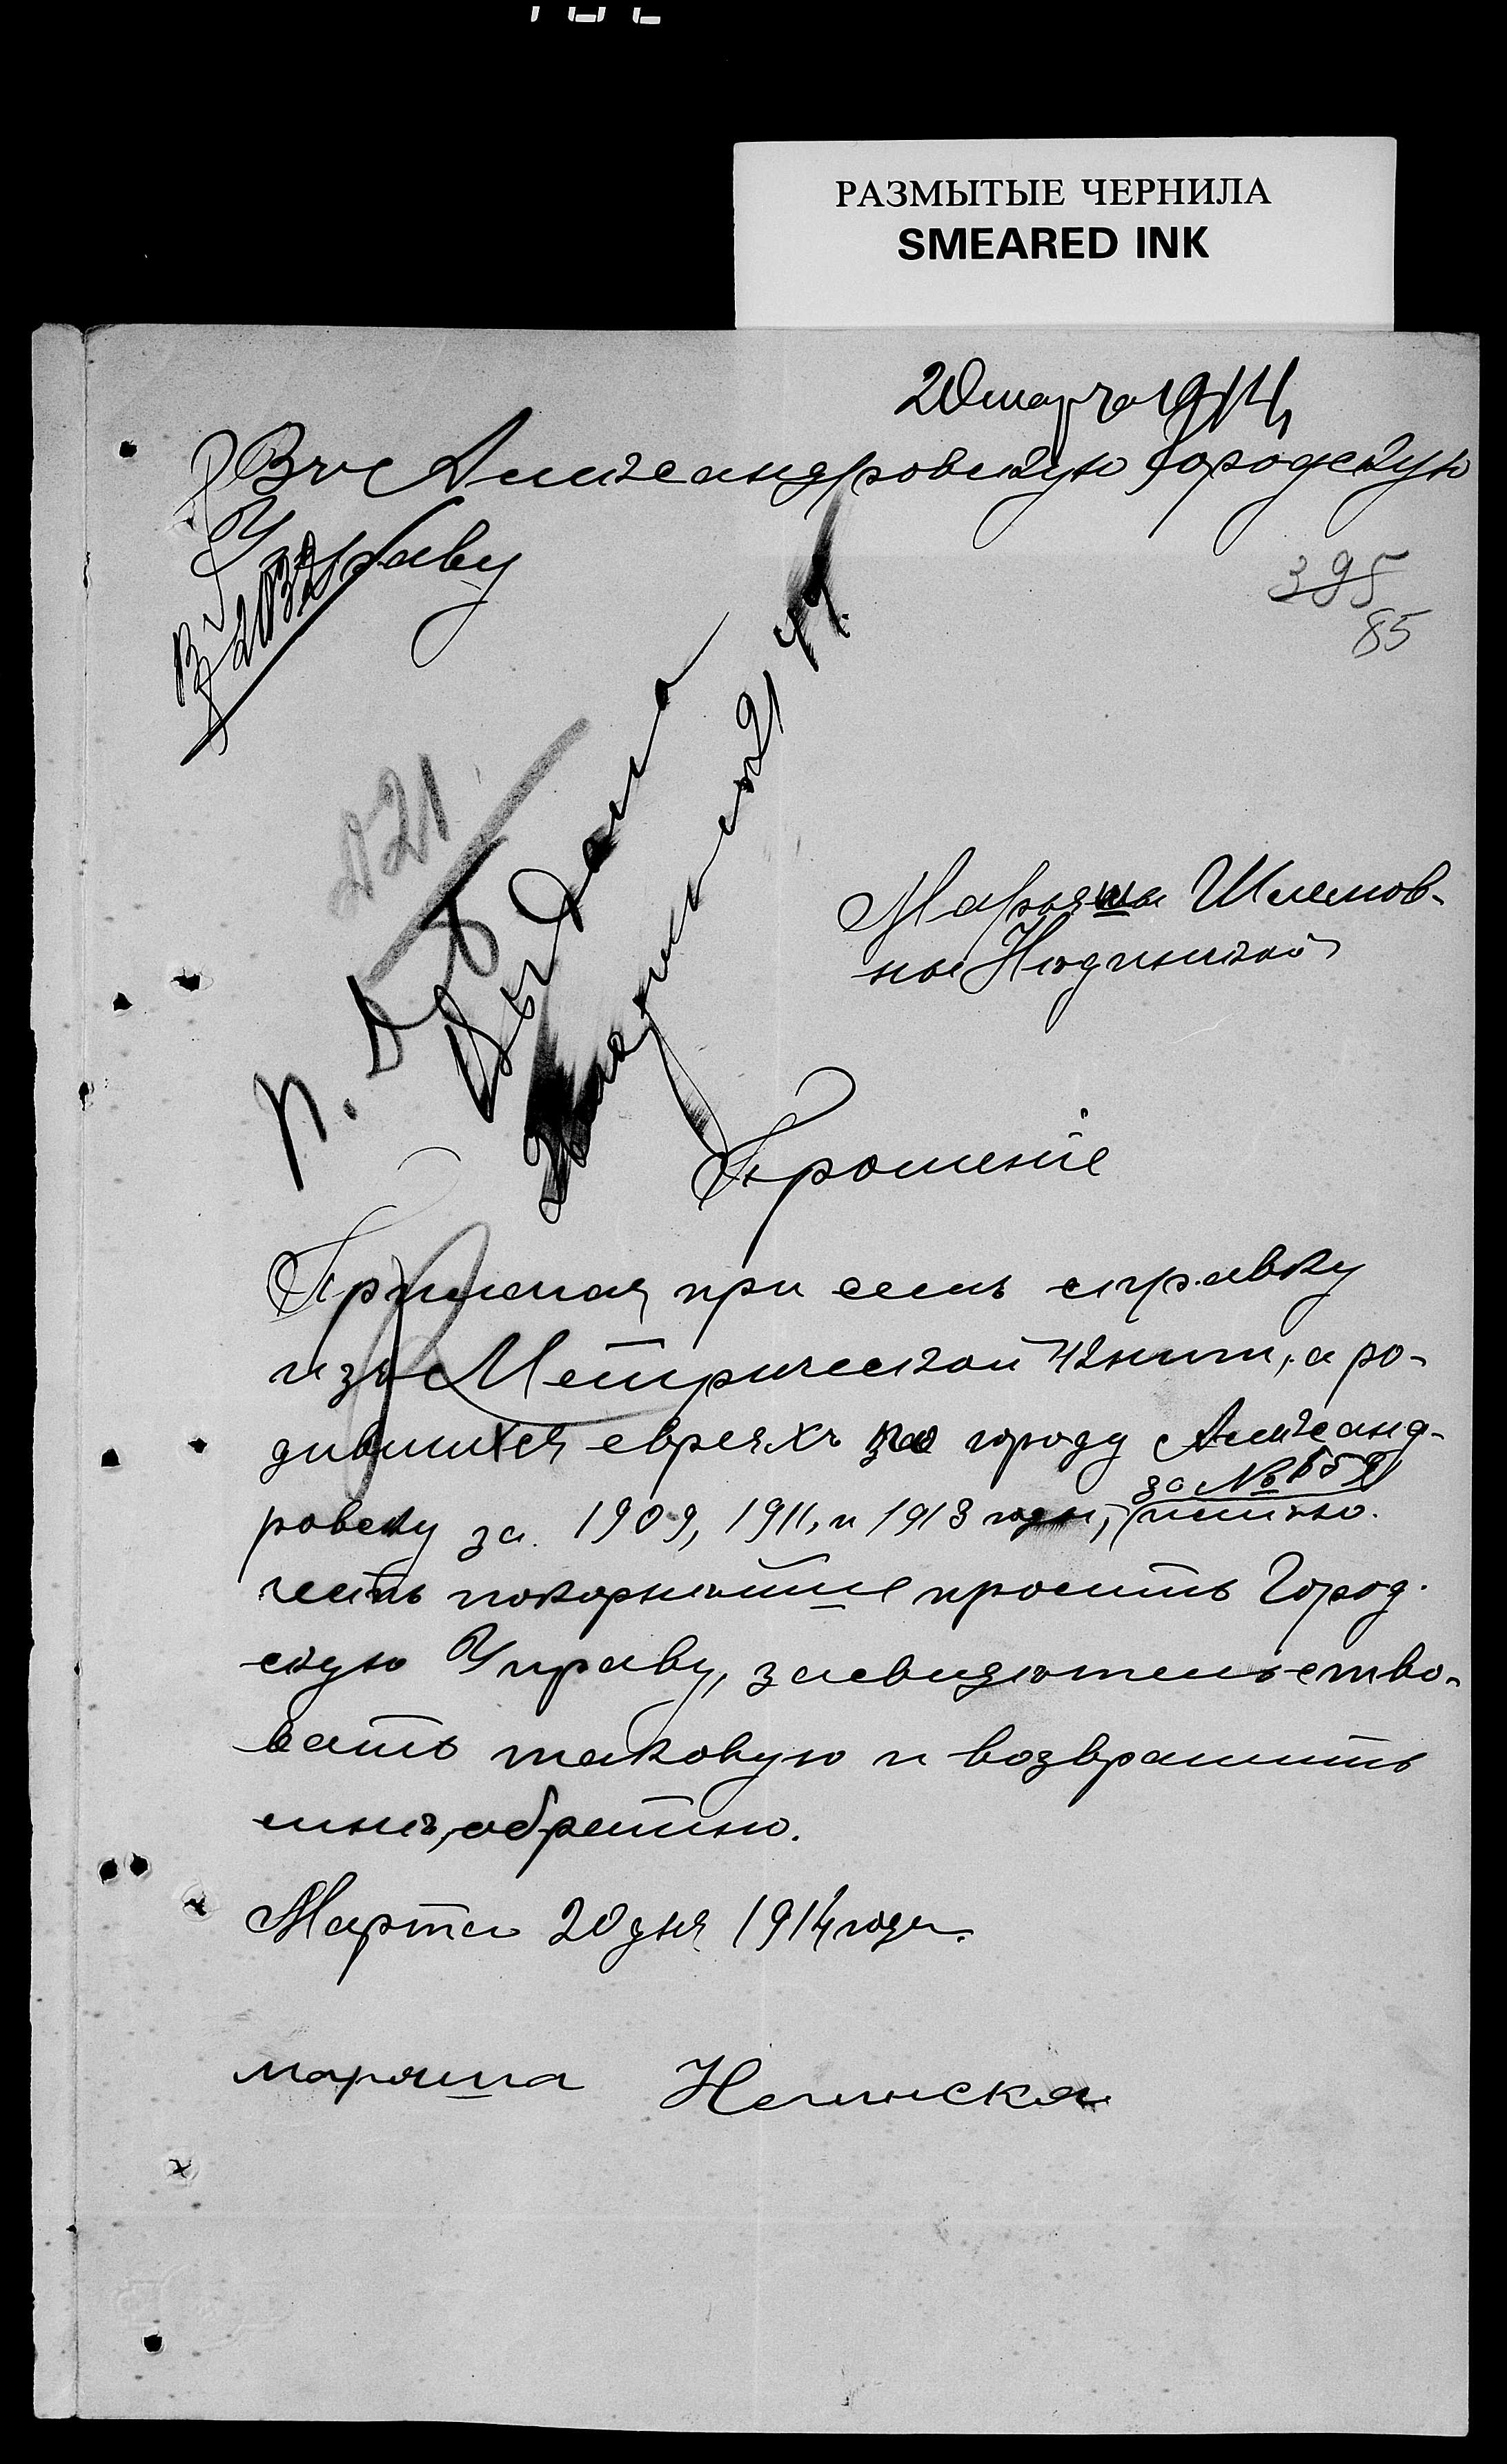 РАЗМЫТЫЕ ЧЕРНИЛА
SMEARED INK
20 марта 1914
Въ Александровскую Городскую
Управу
395
85
В
2032
21
Выдана
21
Марьяши Шлемов-
ны
Прошеніе
Прилагая при семъ справку
изъ Метрической книги, о ро-
дившихся евреяхъ по городу Александ-
ровску за 1909, 1911, и 1913 годы, имѣю
за №
честь покорнѣйше просить Город-
скую Управу, засвидѣтельство-
вать таковую и возвратить
мнѣ, обратно.
Марта 20 дня 1914 года.
маряша